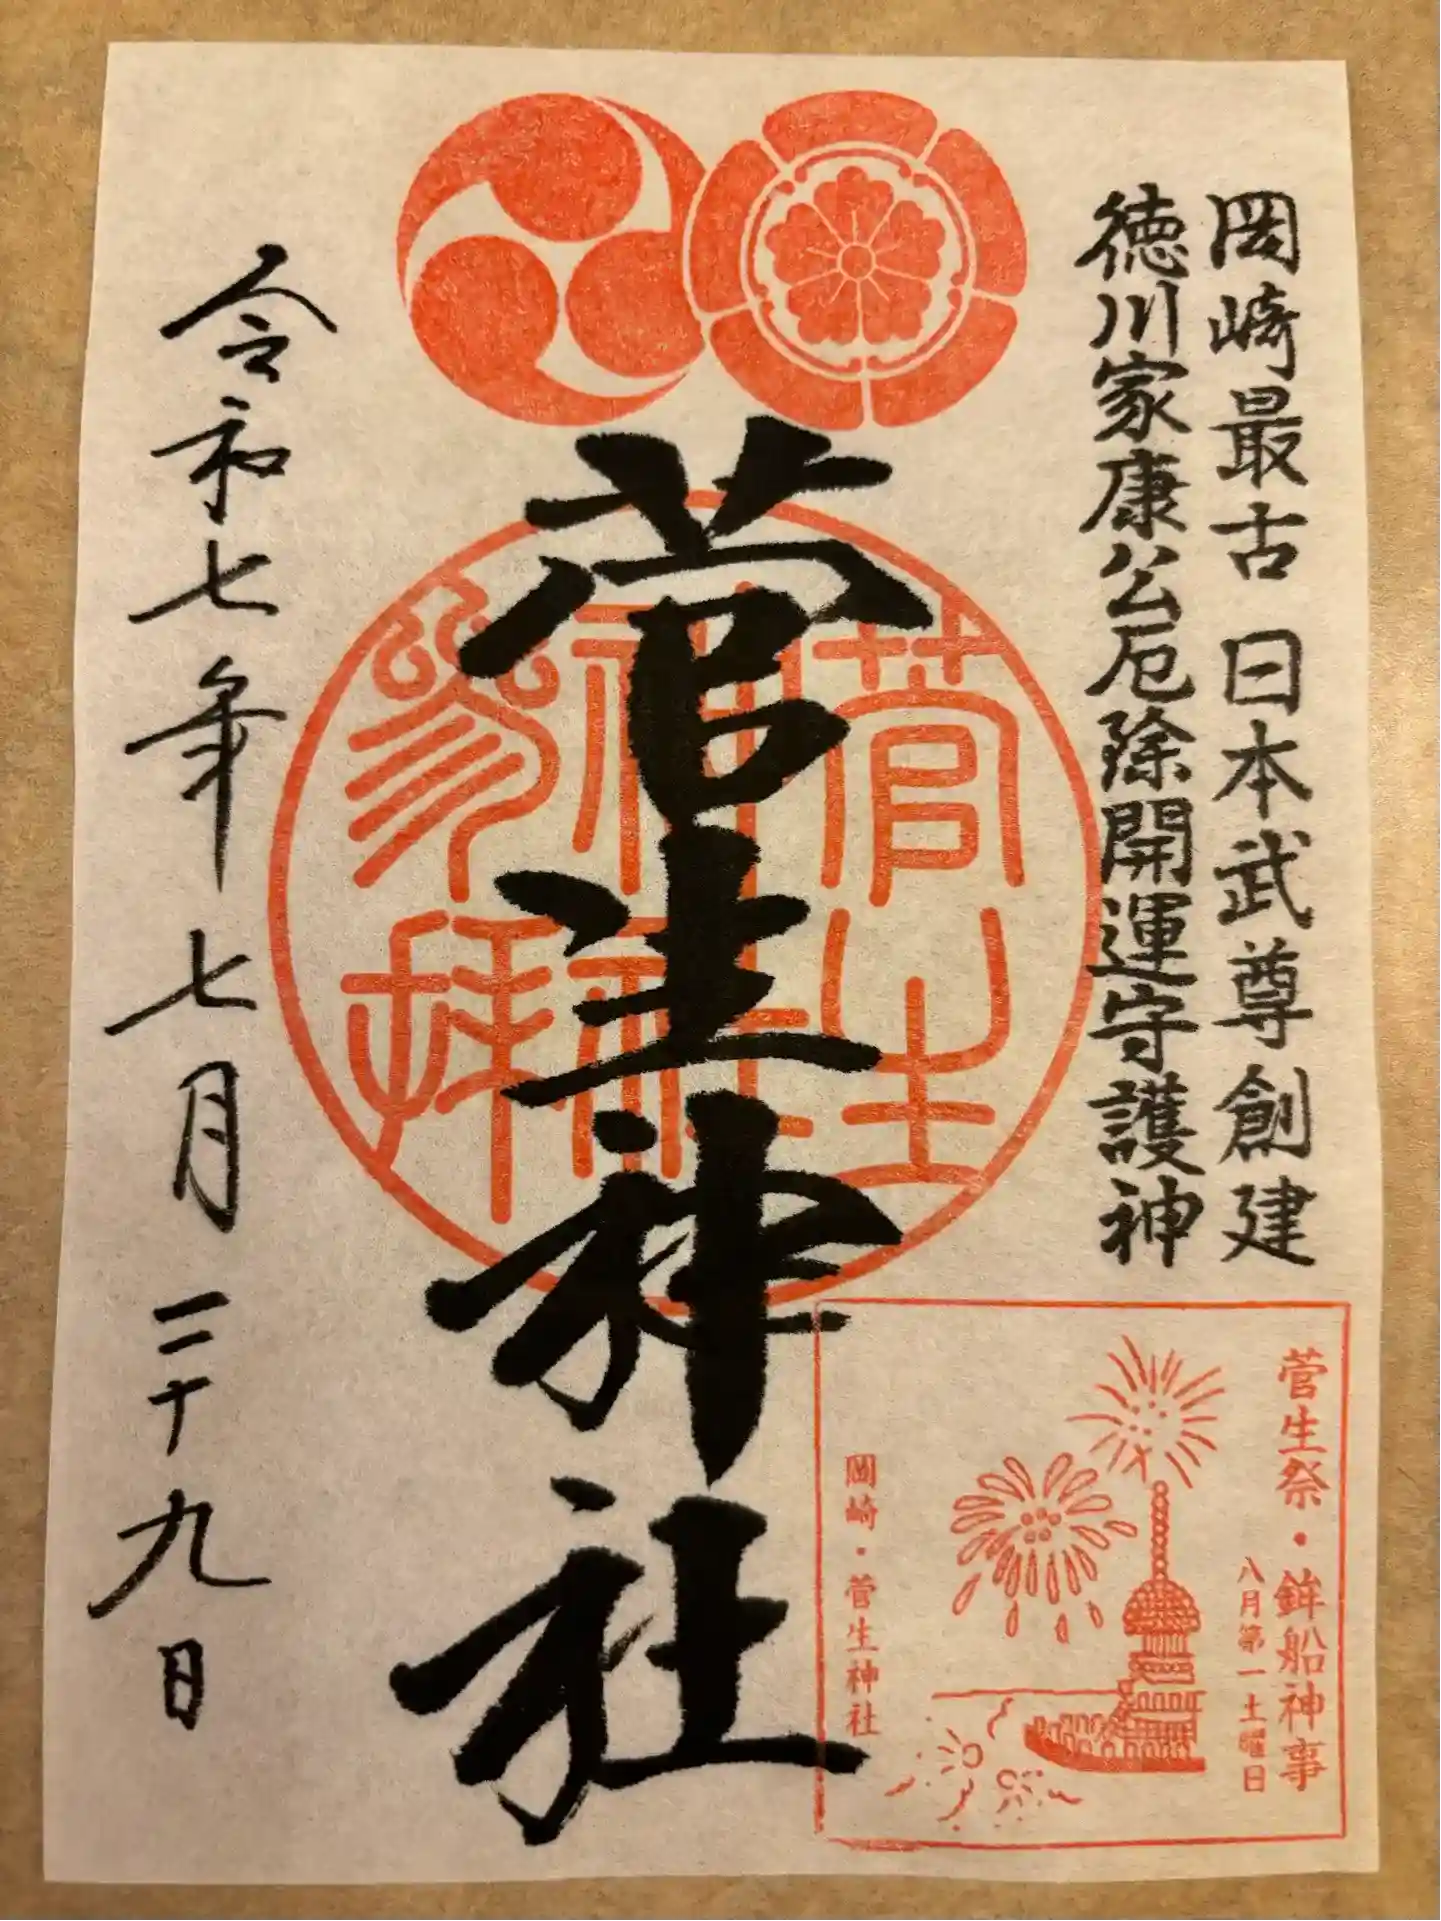 岡崎最古 日本武尊創建
徳川家康公厄除開運守護神
菅生神社
菅生
神社
参拝
令和七年七月二十九日
菅生祭・鉾船神事
八月第一土曜日
岡崎・菅生神社